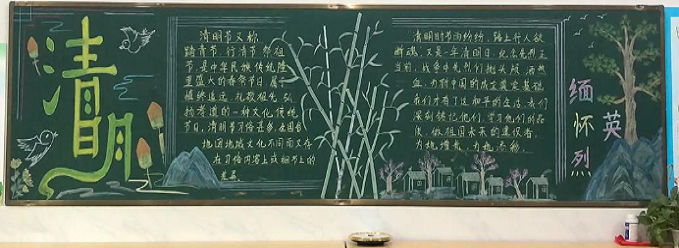 清明
清明节又称
踏青节、行清节、祭祖
节、是中华民族传统隆
重盛大的春祭节日、属于
慎终追远、礼敬祖先、弘
扬孝道的一种文化传统
节日。清明节习俗
地因地域文化不同而又存
在习俗内容上或细节上的
差异。
清明时节雨纷纷，路上行人欲
断魂。又是一年清明日，纪念先烈正
当前，战争中先烈们抛头颅、洒热
血，为新中国的成立奠定基础，
我们才有了这和平的生活，我们
深刻铭记他们，学习他们的品
质，做祖国未来的建设者，
为她增光，为她添彩。
缅怀
英烈